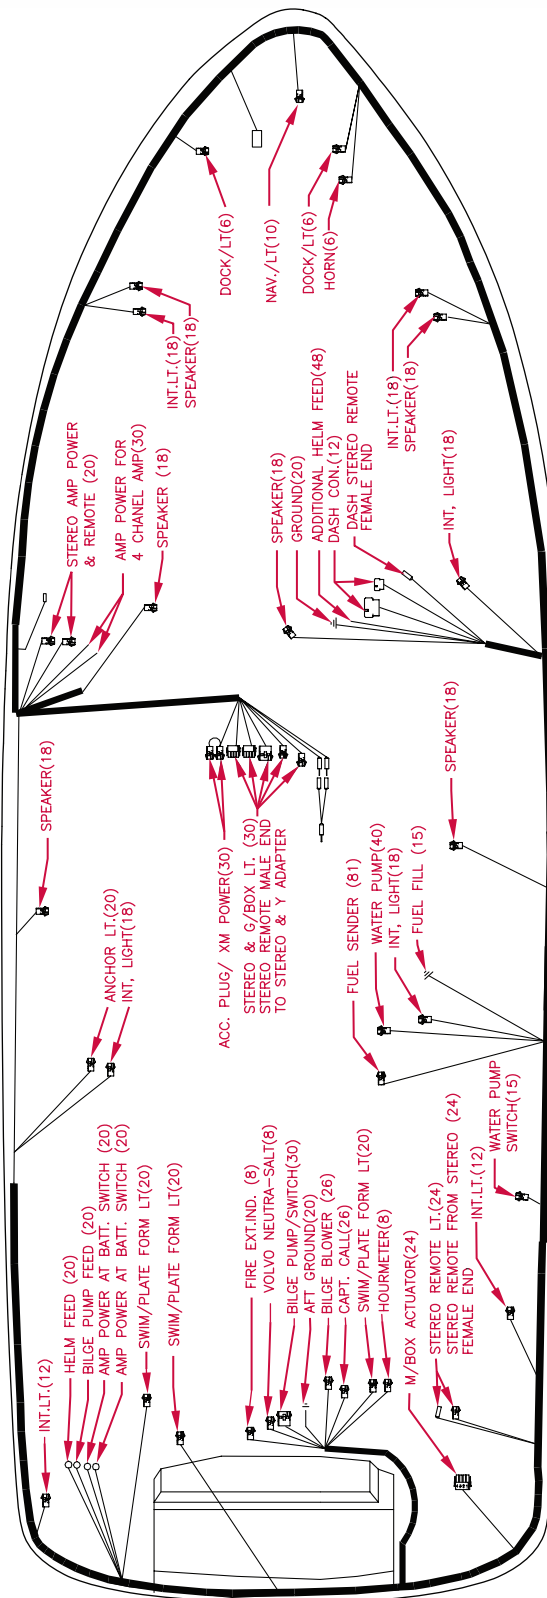 DOCK/LT(6)
NAV./LT(10)
DOCK/LT(6)
HORN(6)
INT.LT.(18)
SPEAKER(18)
INT.LT.(18)
SPEAKER(18)
STEREO AMP POWER
& REMOTE (20)
AMP POWER FOR
4 CHANEL AMP(30)
SPEAKER (18)
SPEAKER(18)
GROUND(20)
ADDITIONAL HELM FEED(48)
DASH CON.(12)
DASH STEREO REMOTE
FEMALE END
INT, LIGHT(18)
SPEAKER(18)
ACC. PLUG/ XM POWER(30)
STEREO & G/BOX LT. (30)
STEREO REMOTE MALE END
TO STEREO & Y ADAPTER
SPEAKER(18)
ANCHOR LT.(20)
INT, LIGHT(18)
FUEL SENDER (81)
WATER PUMP(40)
INT, LIGHT(18)
FUEL FILL (15)
INT.LT.(12)
HELM FEED (20)
BILGE PUMP FEED (20)
AMP POWER AT BATT. SWITCH (20)
AMP POWER AT BATT. SWITCH (20)
SWIM/PLATE FORM LT(20)
SWIM/PLATE FORM LT(20)
FIRE EXT.IND. (8)
VOLVO NEUTRA-SALT(8)
BILGE PUMP/SWITCH(30)
AFT GROUND(20)
BILGE BLOWER (26)
CAPT. CALL(26)
SWIM/PLATE FORM LT(20)
HOURMETER(8)
M/BOX ACTUATOR(24)
STEREO REMOTE LT.(24)
STEREO REMOTE FROM STEREO (24)
FEMALE END
INT.LT.(12)
WATER PUMP
SWITCH(15)